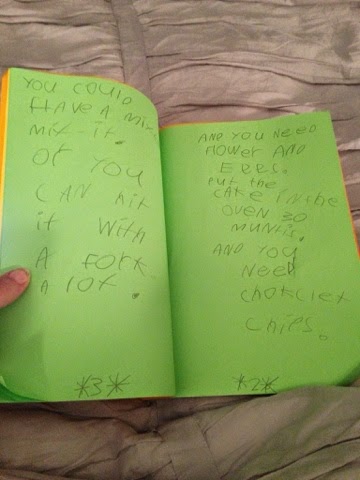 YOU COULD
HAVE A MIX
MIX-it.
Or YOU
CAN hit
it With
A FORK
A lot.
*3*
AND YOU NEED
flower AND
EEBS.
PUt the
CAKE IN the
OVEN 30
MUNtIS.
AND YOU
NEED
CHOKCLET
CHIPS.
*2*